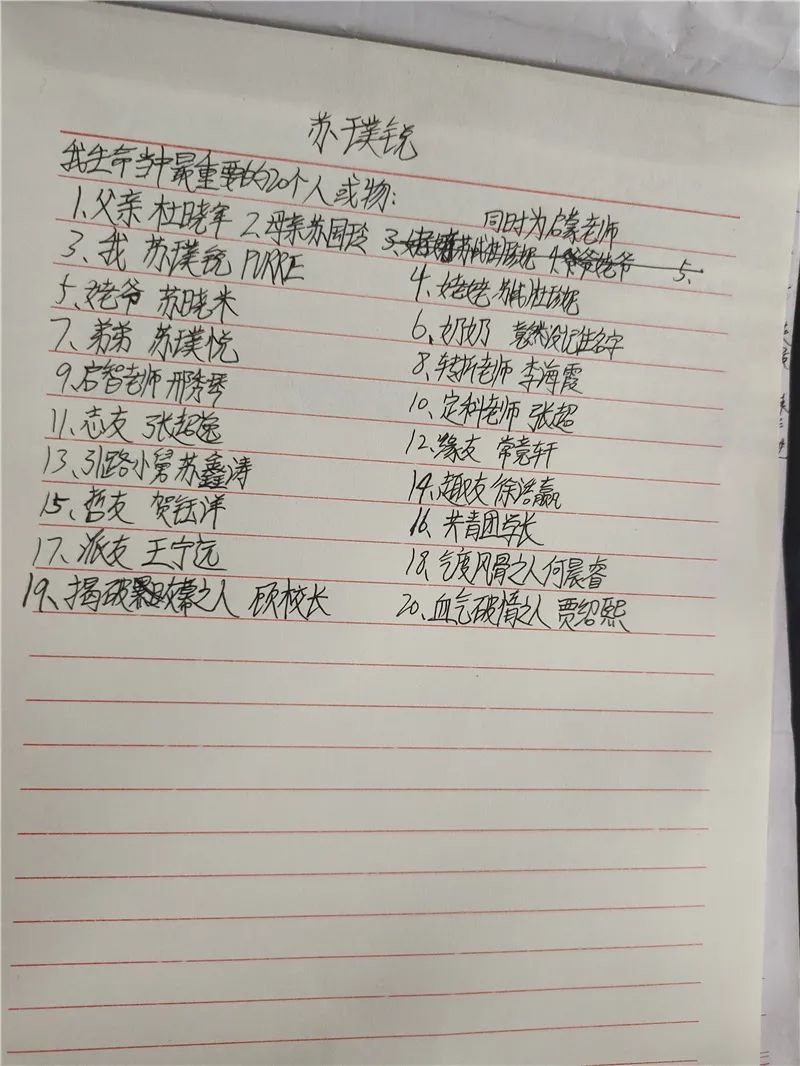 苏璞锐
我生命当中最重要的20个人或物:
同时为启蒙老师
1、父亲 杜晓军 2、母亲苏国玲 3、 4、 5、
3、我 苏璞锐 PURRE 4、姥姥 杜珍妮
5、姥爷 苏晓米 6、奶奶 竟然没记住名字
7、弟弟 苏璞悦 8、转折老师 李海霞
9、启智老师 邢秀琴 10、定科老师 张超
11、志友 张超逸 12、缘友 常竞轩
13、引路小舅 苏鑫涛 14、趣友 徐浩赢
15、哲友 贺钰洋 16、共青团学长
17、派友 王宁远 18、气度风骨之人 何晨睿
19、揭破黑幕之人 顾校长 20、血气破情之人 贾绍熙